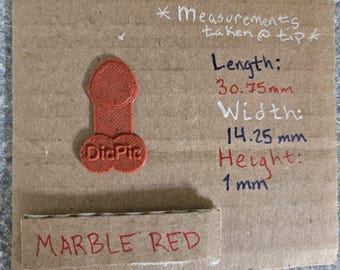 *Measurements
taken @ tip*
Length:
30.75mm
Width:
14.25 mm
Height:
1 mm
DicPic
MARBLE RED